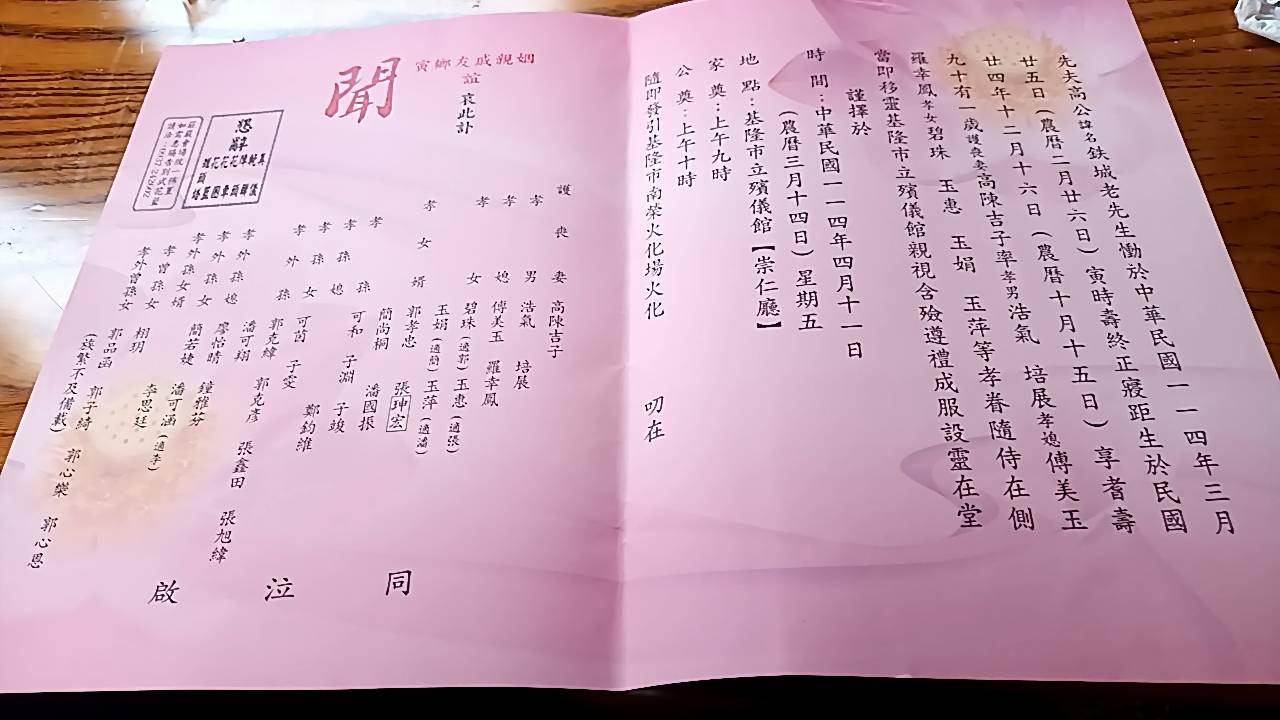 先夫高公諱名鉄城老先生慟於中華民國一一四年三月
廿五日(農曆二月廿六日)寅時壽終正寢距生於民國
廿四年十二月十六日(農曆十月十五日)享耆壽
九十有一歲護喪妻高陳吉子率孝男浩氣 培展孝媳傅美玉
羅幸鳳孝女碧珠 玉惠 玉娟 玉萍等孝眷隨侍在側
當即移靈基隆市立殯儀館親視含殮遵禮成服設靈在堂
謹擇於
時間:中華民國一一四年四月十一日
(農曆三月十四日)星期五
地點:基隆市立殯儀館【崇仁廳】
家奠:上午九時
公奠:上午十時
隨即發引基隆市南榮火化場火化 叨在
姻親戚友鄉寅
誼 哀此訃
聞
護喪妻 高陳吉子
孝男 浩氣 培展
孝媳 傅美玉 羅幸鳳
孝女 碧珠(適郭) 玉惠(適張)
玉娟(適簡) 玉萍(適潘)
孝女婿 郭孝忠 張珅宏
簡尚桐 潘國振
孝孫 可和 子淵 子竣
孝孫媳
孝孫女 可茵 子雯 鄭鈞維
孝外孫 郭克緯 郭克彥 張鑫田 張旭緯
潘可翔
孝外孫媳 廖怡晴 鐘雅芬
孝外孫女 簡若婕 潘可涵(適李)
孝外孫女婿 李思廷
孝曾孫女 栩玥
孝外曾孫女 郭品函 郭子綺 郭心樂 郭心恩
(族繁不及備載)
同泣啟
懇辭